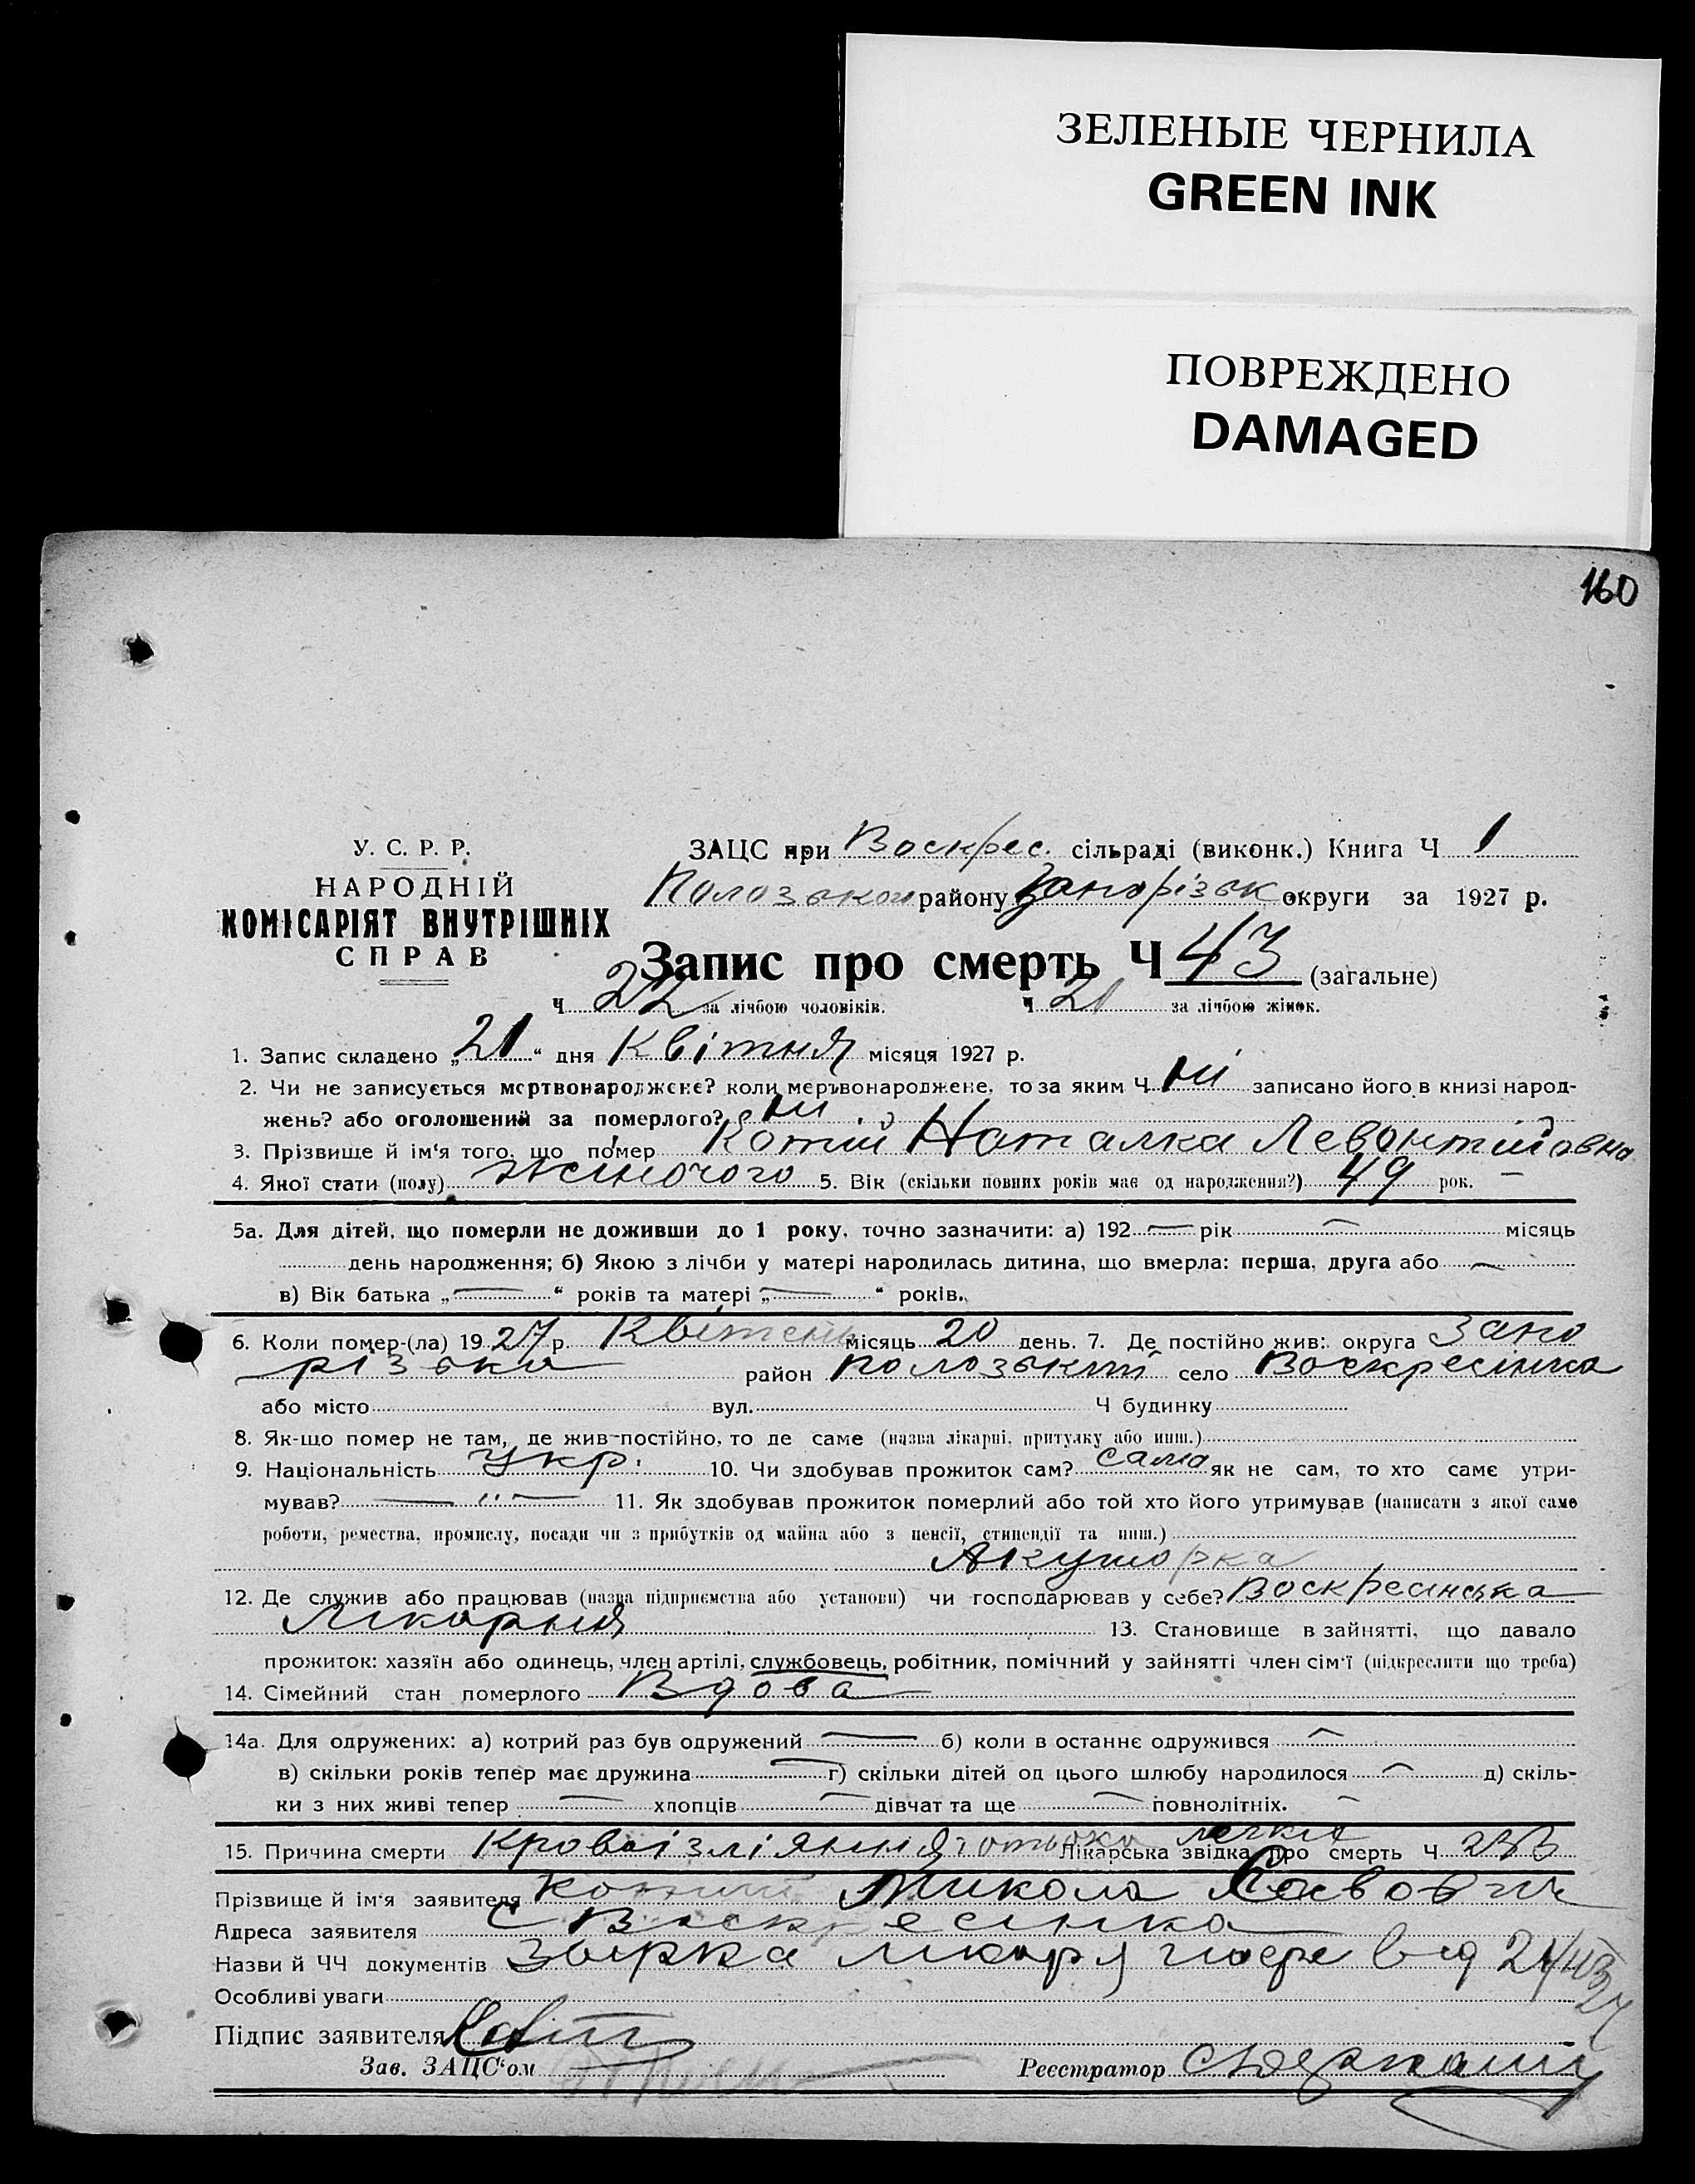 ЗЕЛЕНЫЕ ЧЕРНИЛА
GREEN INK
ПОВРЕЖДЕНО
DAMAGED
160
У. С. Р. Р.
НАРОДНІЙ
КОМІСАРІЯТ ВНУТРІШНІХ
СПРАВ
ЗАЦС при Воскрес. сільраді (виконк.) Книга Ч 1
району Запорізьк округи за 1927 р.
Запис про смерть Ч 43 (загальне)
Ч 22 за лічбою чоловіків. Ч 21 за лічбою жінок.
1. Запис складено „21“ дня Квітня місяця 1927 р.
2. Чи не записується мертвонароджене? коли мертвонароджене, то за яким Ч ні записано його в книзі народ-
жень? або оголошений за померлого? ні
3. Прізвище й ім'я того, що помер Котій Наталка Левонтіівна
4. Якої стати (полу) жіночого 5. Вік (скільки повних років має од народження?) 49 рок. —
5а. Для дітей, що померли не доживши до 1 року, точно зазначити: а) 192 — рік — місяць
день народження; б) Якою з лічби у матері народилась дитина, що вмерла: перша, друга або —
в) Вік батька „—“ років та матері „—“ років.
6. Коли помер-(ла) 1927 р. Квітень місяць 20 день. 7. Де постійно жив: округа Запо
різька район Полозький село Воскресінка
або місто вул. Ч будинку
8. Як-що помер не там, де жив постійно, то де саме (назва лікарні, притулку або инш.)
9. Національність Укр. 10. Чи здобував прожиток сам? сама як не сам, то хто саме утри-
мував? — „ — 11. Як здобував прожиток померлий або той хто його утримував (написати з якої саме
роботи, ремества, промислу, посади чи з прибутків од майна або з пенсії, стипендії та инш.)
Акушорка
12. Де служив або працював (назва підприємства або установи) чи господарював у себе? Воскресінська
лікарня 13. Становище в зайнятті, що давало
прожиток: хазяїн або одинець, член артілі, службовець, робітник, помічний у зайнятті член сім'ї (підкреслити що треба)
14. Сімейний стан померлого Вдова
14а. Для одружених: а) котрий раз був одружений — б) коли в останнє одружився —
в) скільки років тепер має дружина — г) скільки дітей од цього шлюбу народилося — д) скіль-
ки з них живі тепер — хлопців — дівчат та ще — повнолітніх. —
15. Причина смерти Кровоізліяння легке Лікарська звідка про смерть Ч
Прізвище й ім'я заявителя Котий Микола Савович
Адреса заявителя С Воскресінка
Назви й ЧЧ документів від
Особливі уваги
Підпис заявителя
Зав. ЗАЦС'ом Реєстратор